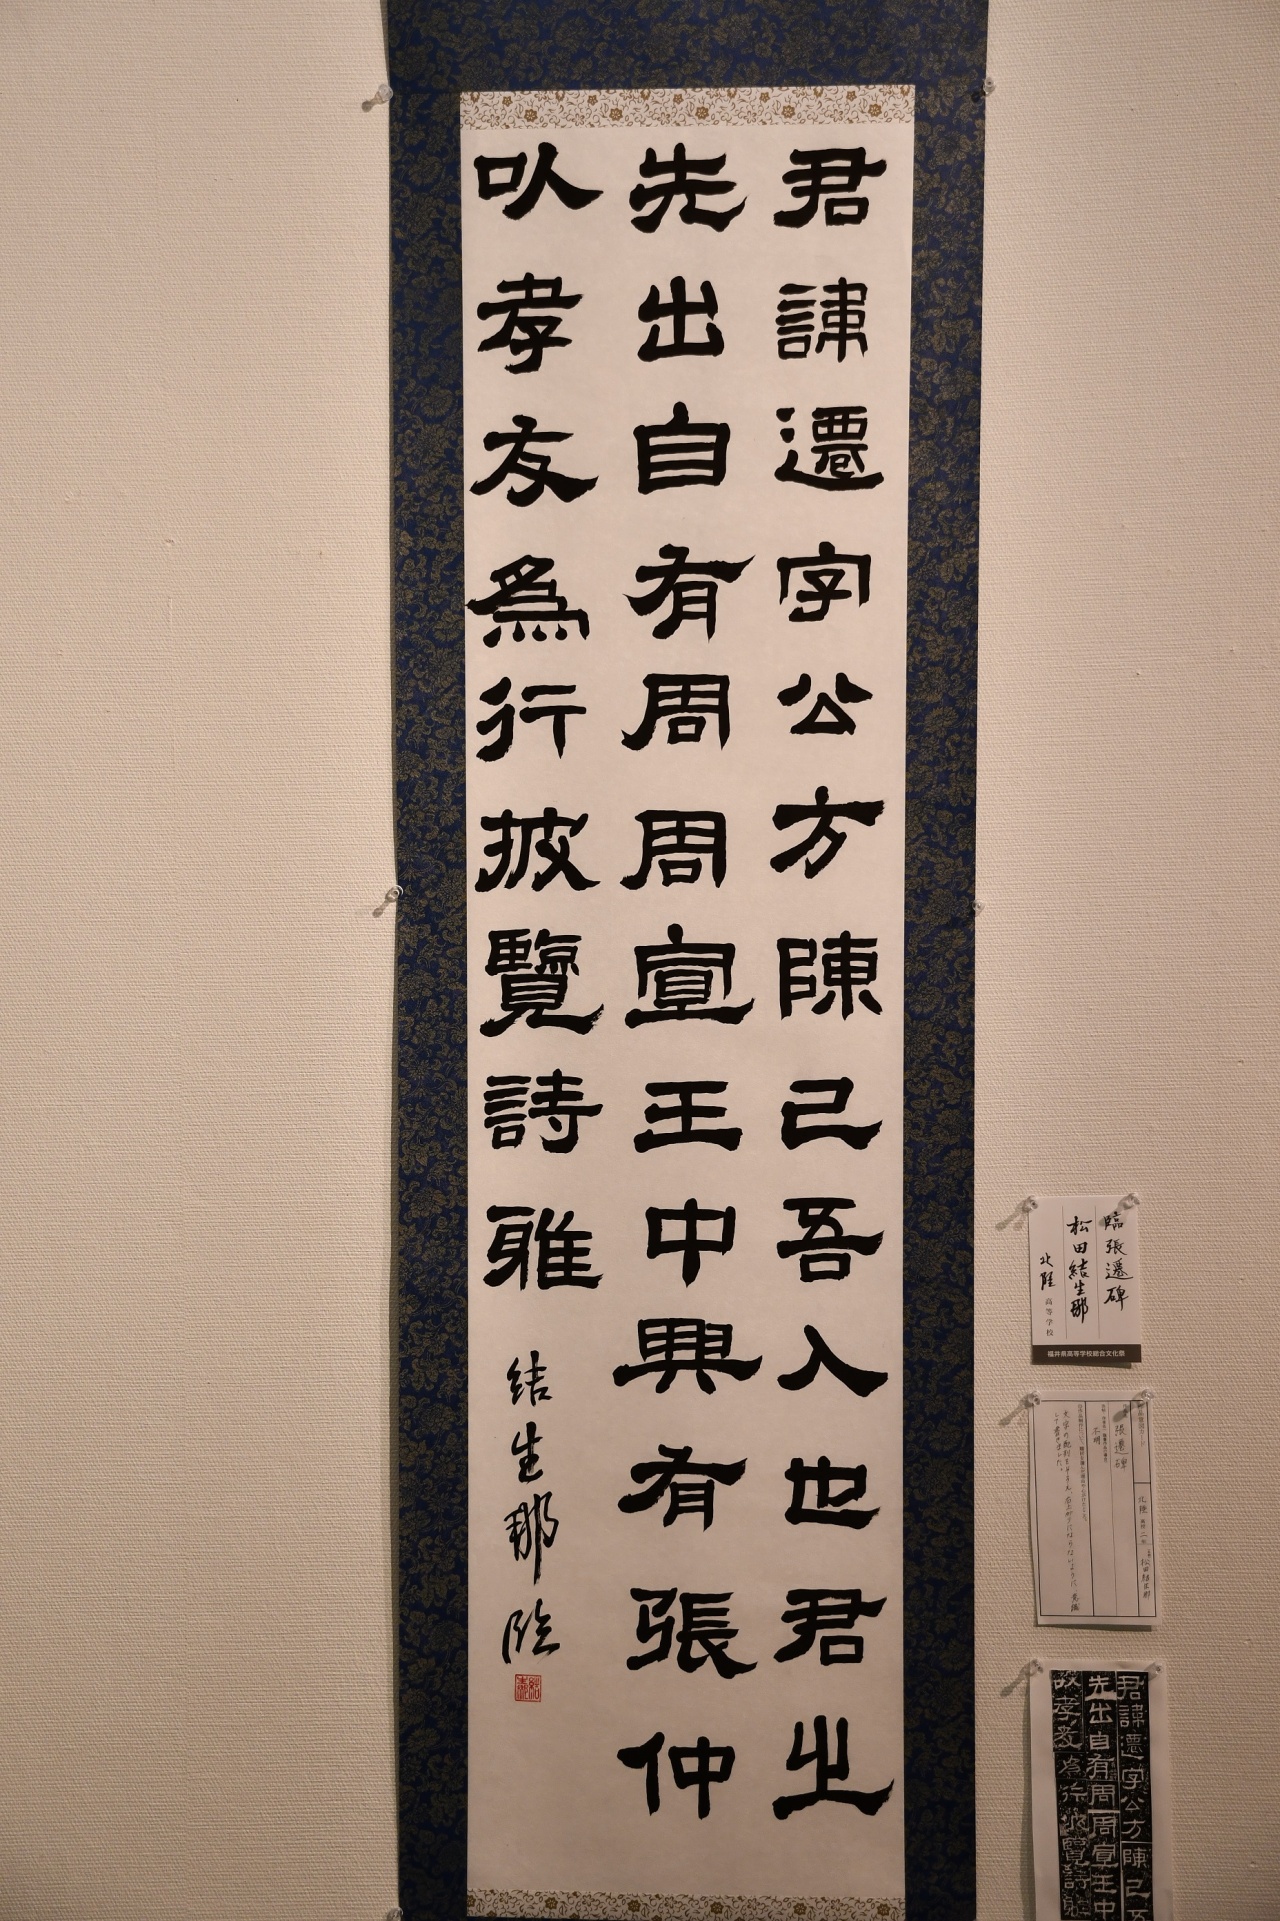 君諱遷字公方陳己吾人也君之
先出自有周周宣王中興有張仲
以孝友為行披覽詩雅
結生那臨
臨張遷碑
松田結生那
北陸高等学校
福井県高等学校総合文化祭
張遷碑
不明
君諱遷字公方陳己吾
先出自有周周宣王中